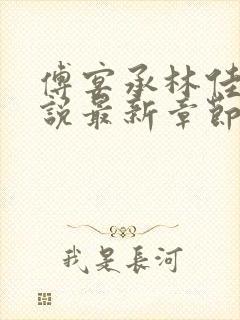 傅宴承林佳
說最新章節
我是長河